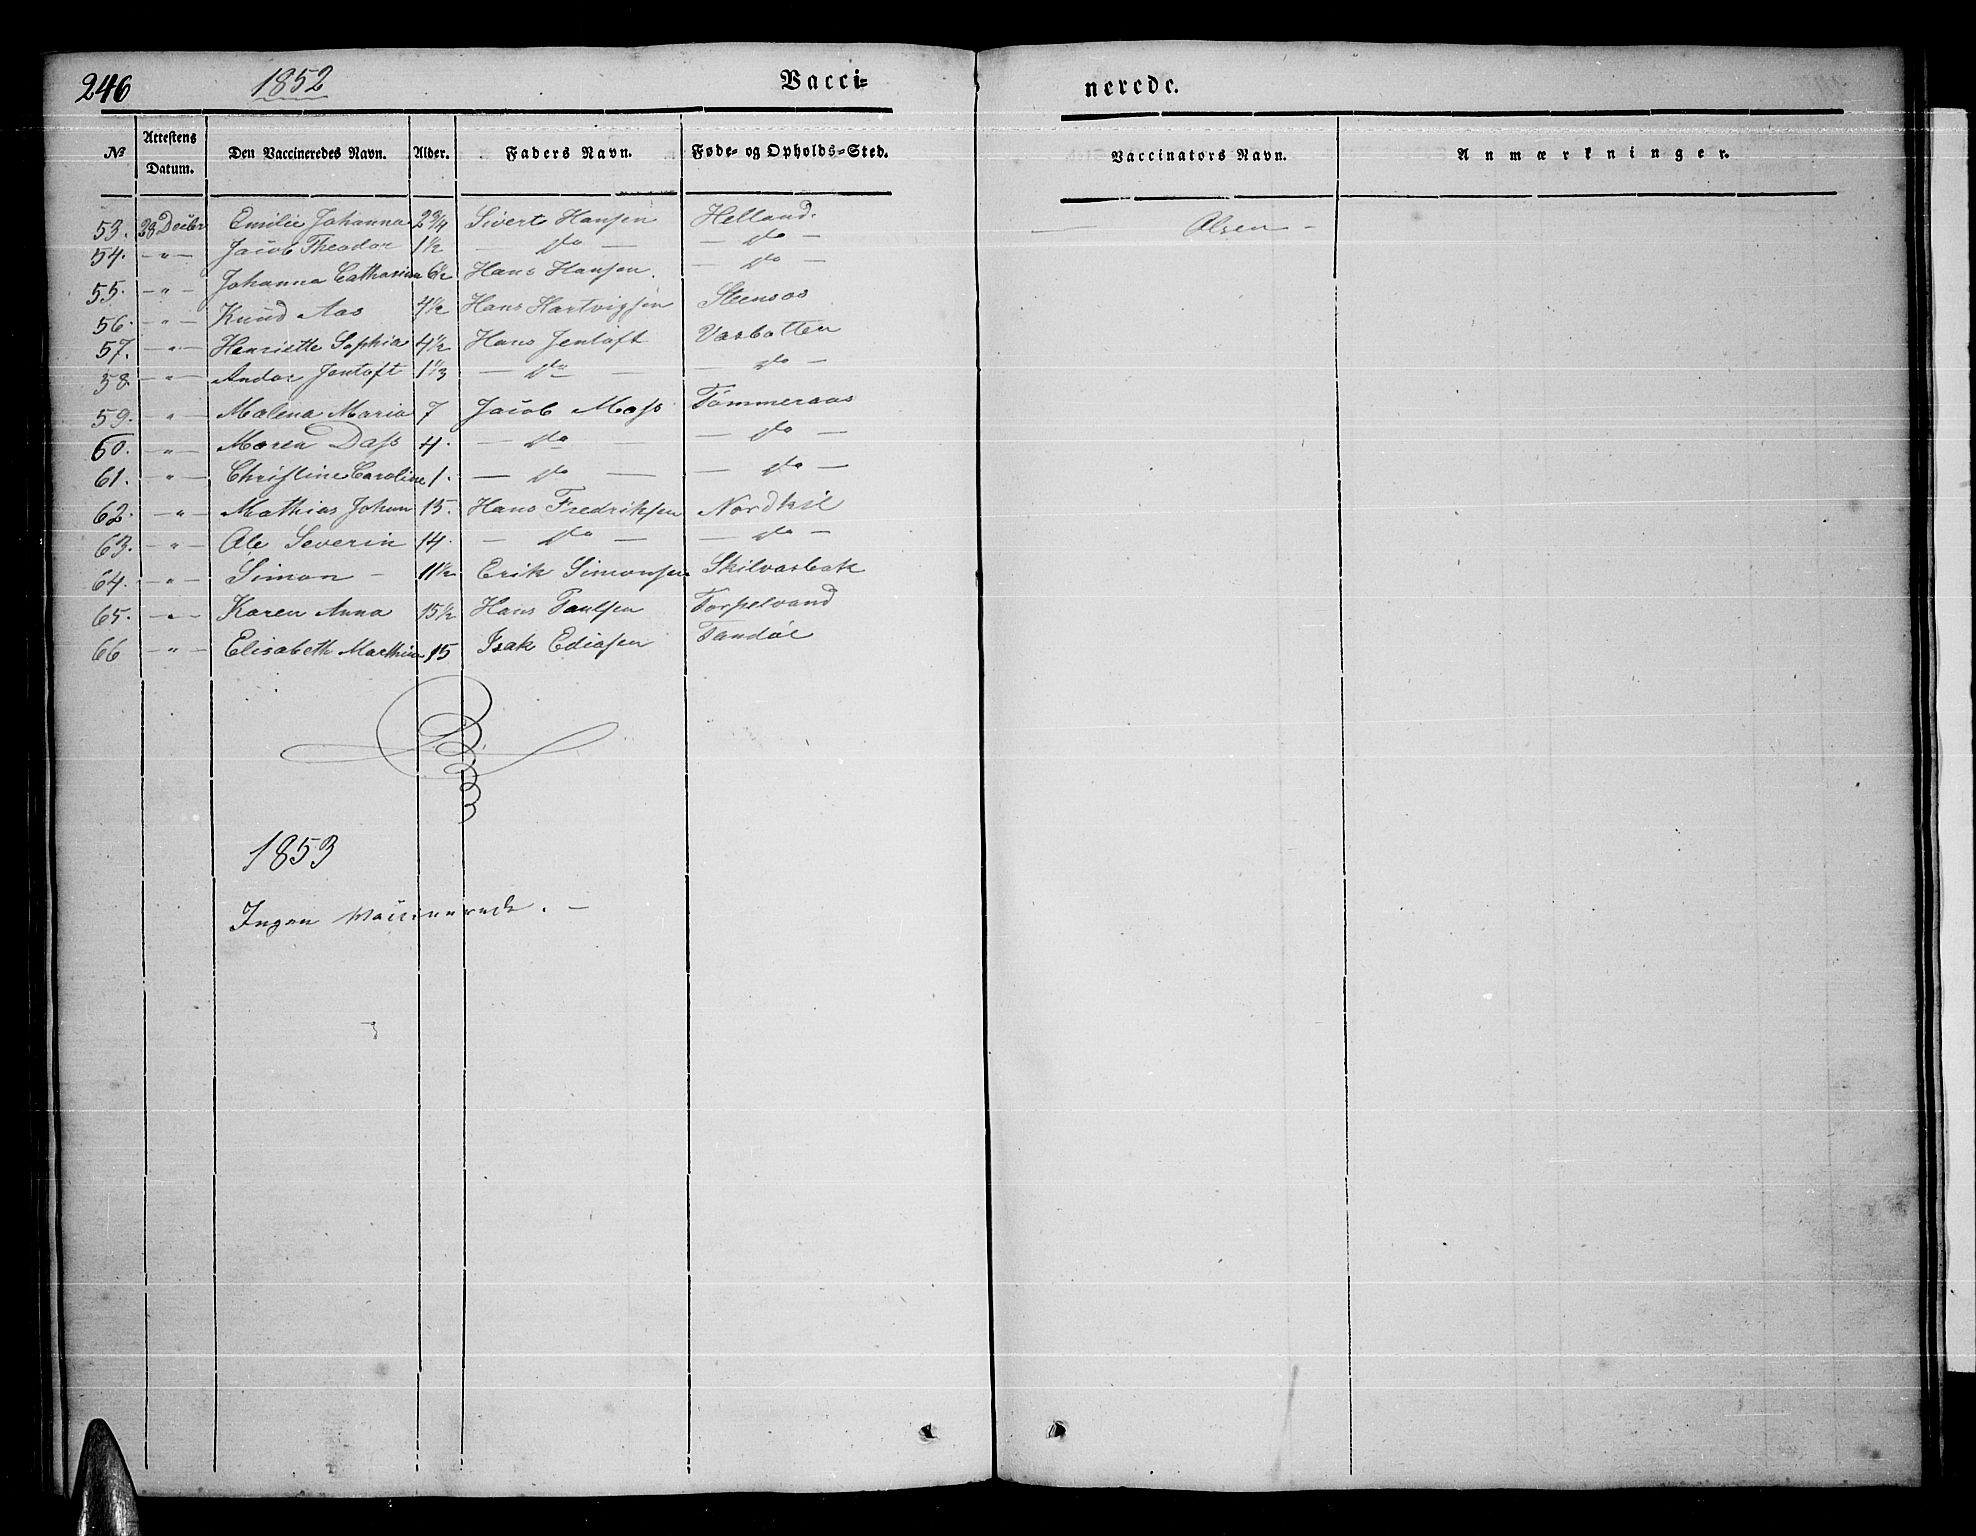 246 1852 Vacci= nerede.
No Attestens Datum. Den Vaccineredes Navn. Alder. Faders Navn. Føde- og Opholds-Sted. Vaccinators Navn. Anmærkninger.
53. 28 Decbr Emilie Johanna 2 3/4 Sivert Hansen Helland. — Olsen —
54. — " — Jacob Theodor 1 1/2 — do — — do —
55. — " — Johanna Catharina 6 1/2 Hans Hansen. — do —
56. — " — Knud Aas 4 1/2 Hans Hartvigsen Steensos
57. — " — Henriette Sophia 4 1/2 Hans Jentoft Vasbotten
58 — " — Andor Jentoft 1 1/3 — do — — do —
59. — " — Malena Maria 7 Jacob Moss Tømmeraas
60. — " — Maren Dass 4. — do — — do —
61. — " — Christine Caroline 1. — do — — do —
62. — " — Mathias Johan 15. Hans Fredriksen Nordkil
63. — " — Ole Severin 14. — do — — do —
64. — " — Simon — 11 1/2 Erik Simonsen Skilvasbak
65. — " — Karen Anna 15 1/2 Hans Paulsen Torpelvand
66 — " — Elisabeth Marthina 15 Isak Ediasen Tandøe
1853
Ingen Vaccinerede. —